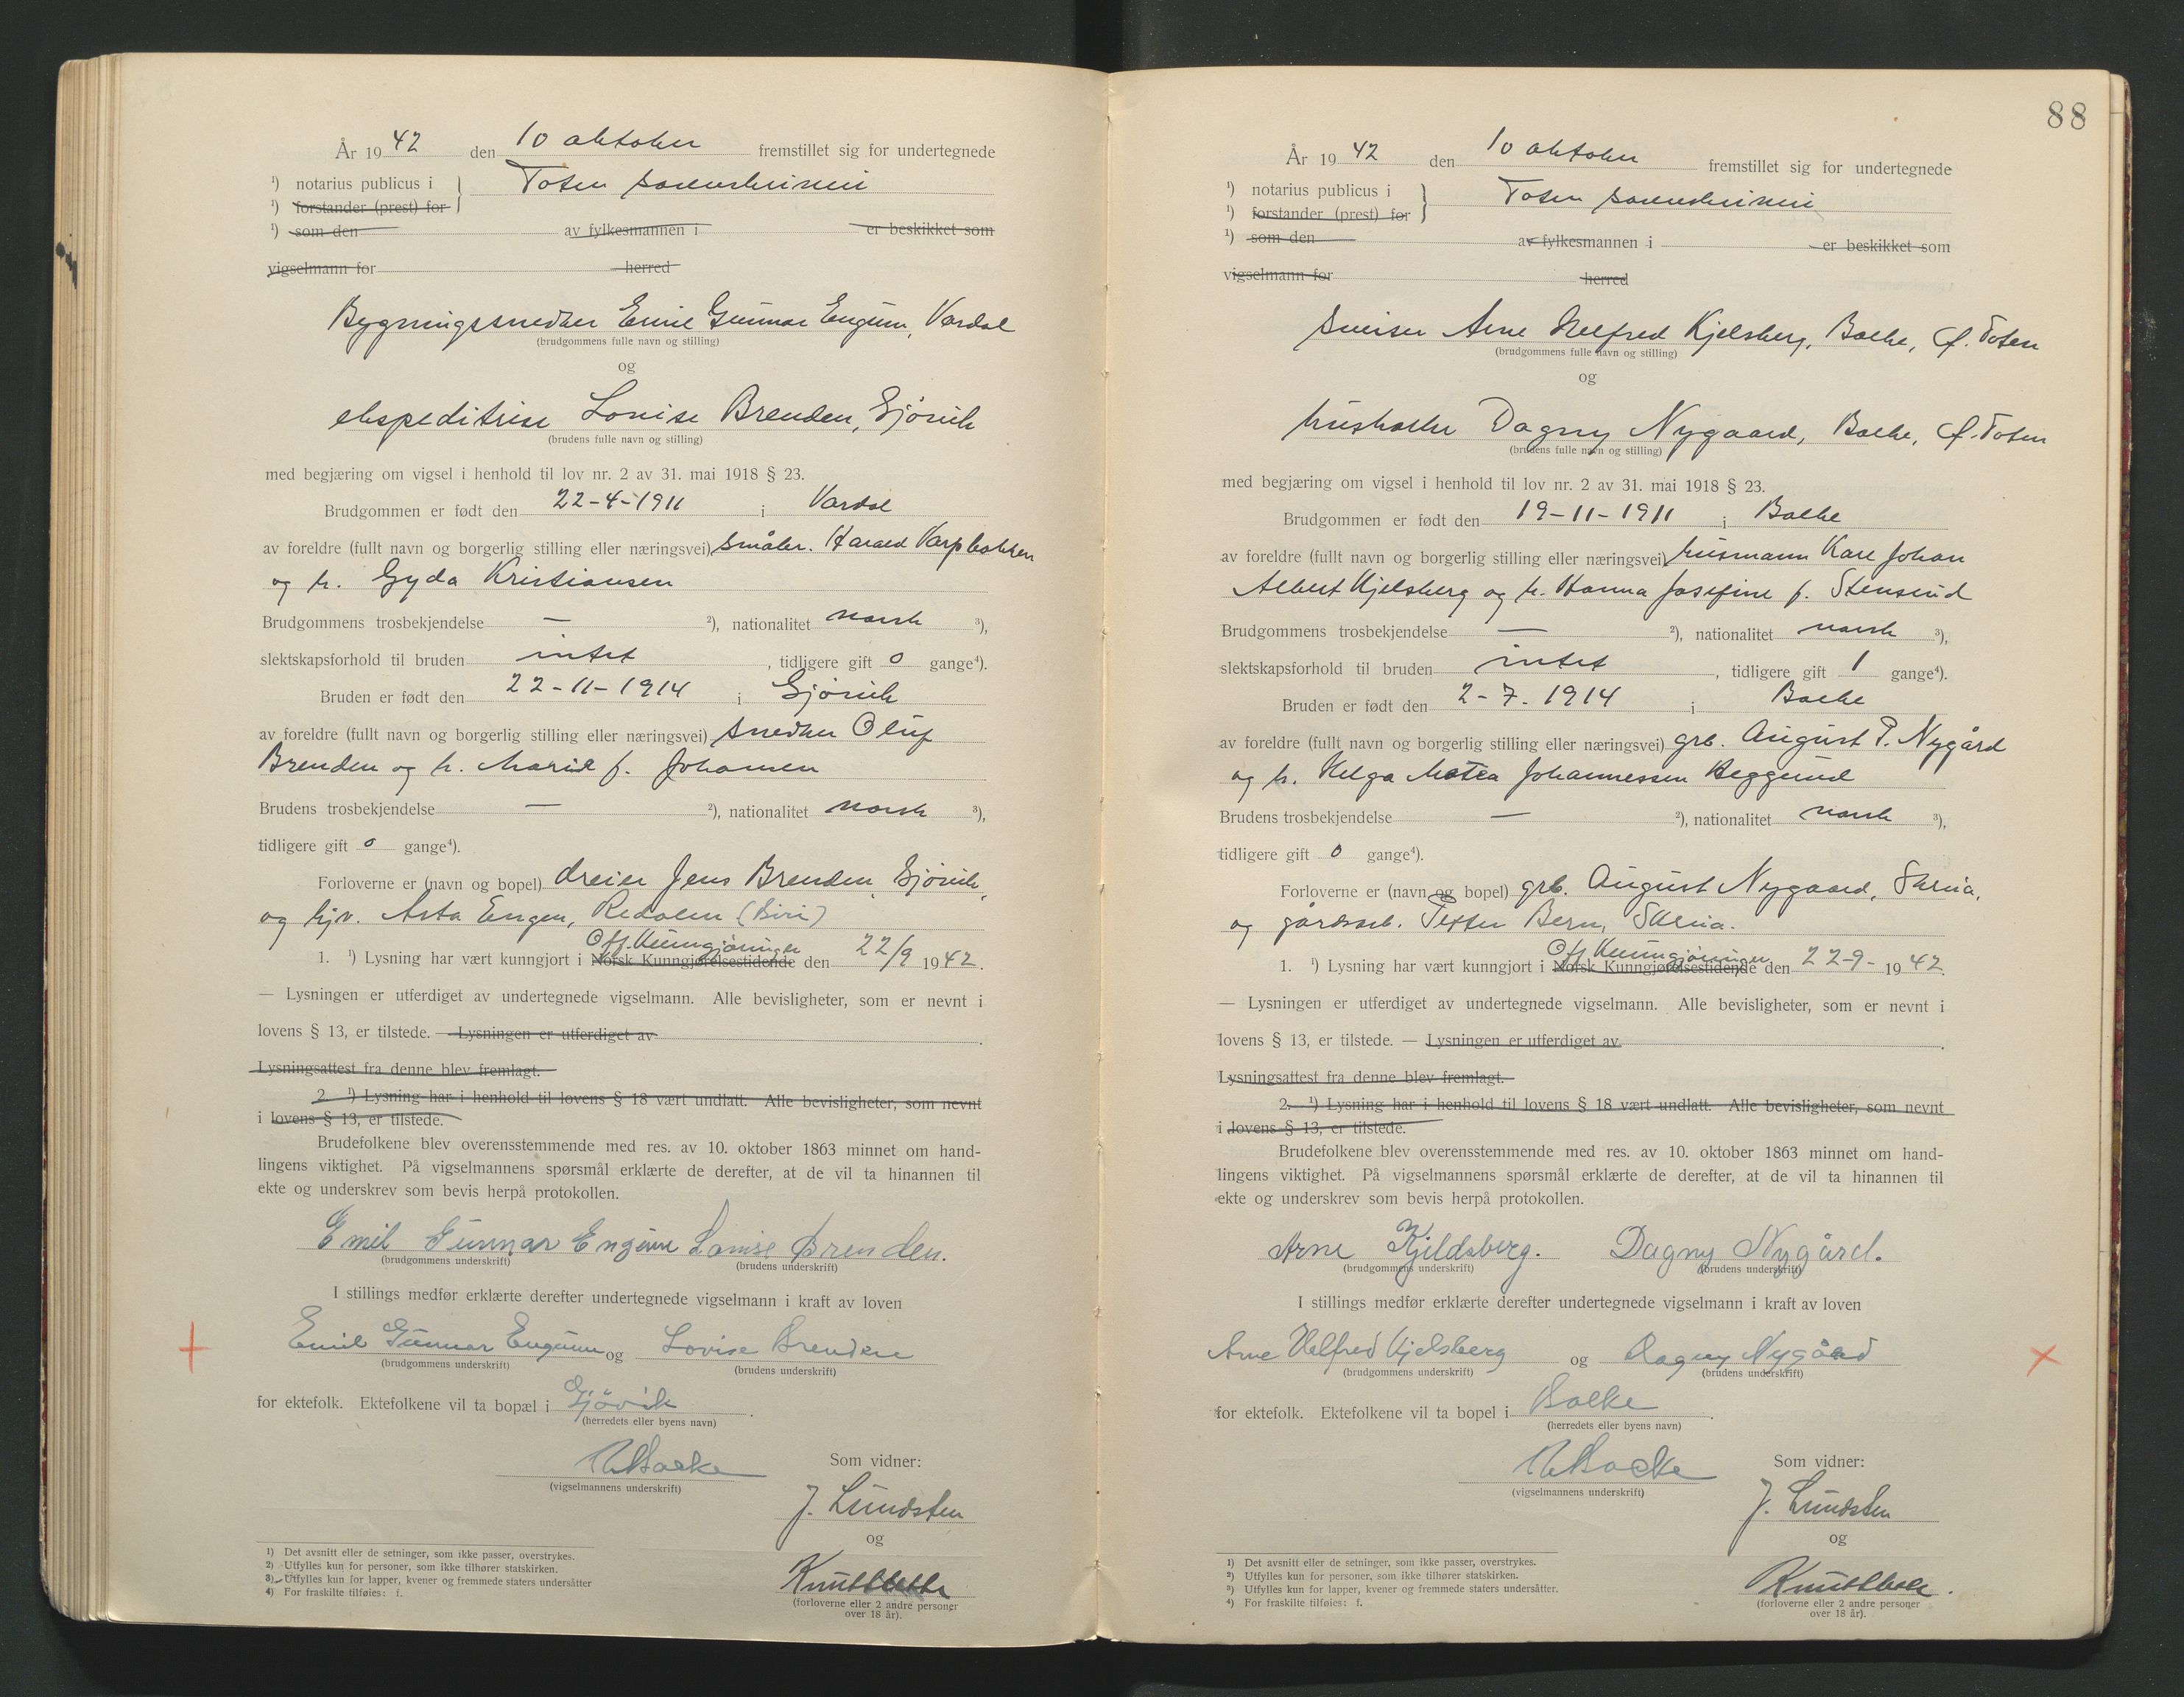 År 19 42 den 10 oktober fremstillet sig for undertegnede
¹) notarius publicus i } Toten sorenskriveri
¹) forstander (prest) for
¹) som den av fylkesmannen i er beskikket som
vigselmann for herred
Bygningssnedker Emil Gunnar Engum, Vardal
(brudgommens fulle navn og stilling)
og
ekspeditrise Lovise Brenden, Gjøvik
(brudens fulle navn og stilling)
med begjæring om vigsel i henhold til lov nr. 2 av 31. mai 1918 § 23.
Brudgommen er født den 22-4-1911 i Vardal
av foreldre (fullt navn og borgerlig stilling eller næringsvei) småbr. Harald Varpbakken
og h. Gyda Kristiansen
Brudgommens trosbekjendelse — ²), nationalitet norsk ³),
slektskapsforhold til bruden intet, tidligere gift 0 gange⁴).
Bruden er født den 22-11-1914 i Gjøvik
av foreldre (fullt navn og borgerlig stilling eller næringsvei) snedker Oluf
Brenden og h. Marie f. Johansen
Brudens trosbekjendelse — ²), nationalitet norsk ³),
tidligere gift 0 gange⁴).
Forloverne er (navn og bopel) dreier Jens Brenden, Gjøvik,
og hjv. Asta Engen, Redalen (Biri)
Off. Kunngjøringer
1. ¹) Lysning har vært kunngjort i Norsk Kunngjørelsestidende den 22/9 1942.
— Lysningen er utferdiget av undertegnede vigselmann. Alle bevisligheter, som er nevnt i
lovens § 13, er tilstede. — Lysningen er utferdiget av
Lysningsattest fra denne blev fremlagt.
2. ¹) Lysning har i henhold til lovens § 18 vært undlatt. Alle bevisligheter, som nevnt
i lovens § 13, er tilstede.
Brudefolkene blev overensstemmende med res. av 10. oktober 1863 minnet om hand-
lingens viktighet. På vigselmannens spørsmål erklærte de derefter, at de vil ta hinannen til
ekte og underskrev som bevis herpå protokollen.
Emil Gunnar Engum Lovise Brenden.
(brudgommens underskrift) (brudens underskrift)
I stillings medfør erklærte derefter undertegnede vigselmann i kraft av loven
Emil Gunnar Engum og Lovise Brenden
(brudgommens underskrift) (brudens underskrift)
for ektefolk. Ektefolkene vil ta bopæl i Gjövik.
(herredets eller byens navn)
Som vidner:
(vigselmannens underskrift)
J. Lundsten
og
(forloverne eller 2 andre personer
over 18 år).
1) Det avsnitt eller de setninger, som ikke passer, overstrykes.
2) Utfylles kun for personer, som ikke tilhører statskirken.
3) Utfylles kun for lapper, kvener og fremmede staters undersåtter
4) For fraskilte tilføies: f.
88
År 19 42 den 10 oktober fremstillet sig for undertegnede
¹) notarius publicus i } Toten sorenskriveri
¹) forstander (prest) for
¹) som den av fylkesmannen i er beskikket som
vigselmann for herred
sveiser Arne Helfred Kjelsberg, Balke, Ø. Toten
(brudgommens fulle navn og stilling)
og
husholder Dagny Nygaard, Balke, Ø. Toten
(brudens fulle navn og stilling)
med begjæring om vigsel i henhold til lov nr. 2 av 31. mai 1918 § 23.
Brudgommen er født den 19-11-1911 i Balke
av foreldre (fullt navn og borgerlig stilling eller næringsvei) husmann Karl Johan
Albert Kjelsberg og h. Hanna Josefine f. Stensrud
Brudgommens trosbekjendelse — ²), nationalitet norsk ³),
slektskapsforhold til bruden intet, tidligere gift 1 gange⁴).
Bruden er født den 2-7. 1914 i Balke
av foreldre (fullt navn og borgerlig stilling eller næringsvei) grb. August P. Nygård
og h. Helga Matea Johannessen Heggund
Brudens trosbekjendelse — ²), nationalitet norsk ³),
tidligere gift 0 gange⁴).
Forloverne er (navn og bopel) grb. August Nygaard, Skreia,
og gårdsarb. Petter Bern, Skreia.
Off. Kunngjøringer
1. ¹) Lysning har vært kunngjort i Norsk Kunngjørelsestidende den 22-9- 1942.
— Lysningen er utferdiget av undertegnede vigselmann. Alle bevisligheter, som er nevnt i
lovens § 13, er tilstede. — Lysningen er utferdiget av
Lysningsattest fra denne blev fremlagt.
2. ¹) Lysning har i henhold til lovens § 18 vært undlatt. Alle bevisligheter, som nevnt
i lovens § 13, er tilstede.
Brudefolkene blev overensstemmende med res. av 10. oktober 1863 minnet om hand-
lingens viktighet. På vigselmannens spørsmål erklærte de derefter, at de vil ta hinannen til
ekte og underskrev som bevis herpå protokollen.
Arne Kjeldsberg. Dagny Nygård.
(brudgommens underskrift) (brudens underskrift)
I stillings medfør erklærte derefter undertegnede vigselmann i kraft av loven
Arne Helfred Kjelsberg og Dagny Nygård
(brudgommens underskrift) (brudens underskrift)
for ektefolk. Ektefolkene vil ta bopel i Balke.
(herredets eller byens navn)
Som vidner:
(vigselmannens underskrift)
J. Lundsten
og
(forloverne eller 2 andre personer
over 18 år).
1) Det avsnitt eller de setninger, som ikke passer, overstrykes.
2) Utfylles kun for personer, som ikke tilhører statskirken.
3) Utfylles kun for lapper, kvener og fremmede staters undersåtter.
4) For fraskilte tilføies: f.